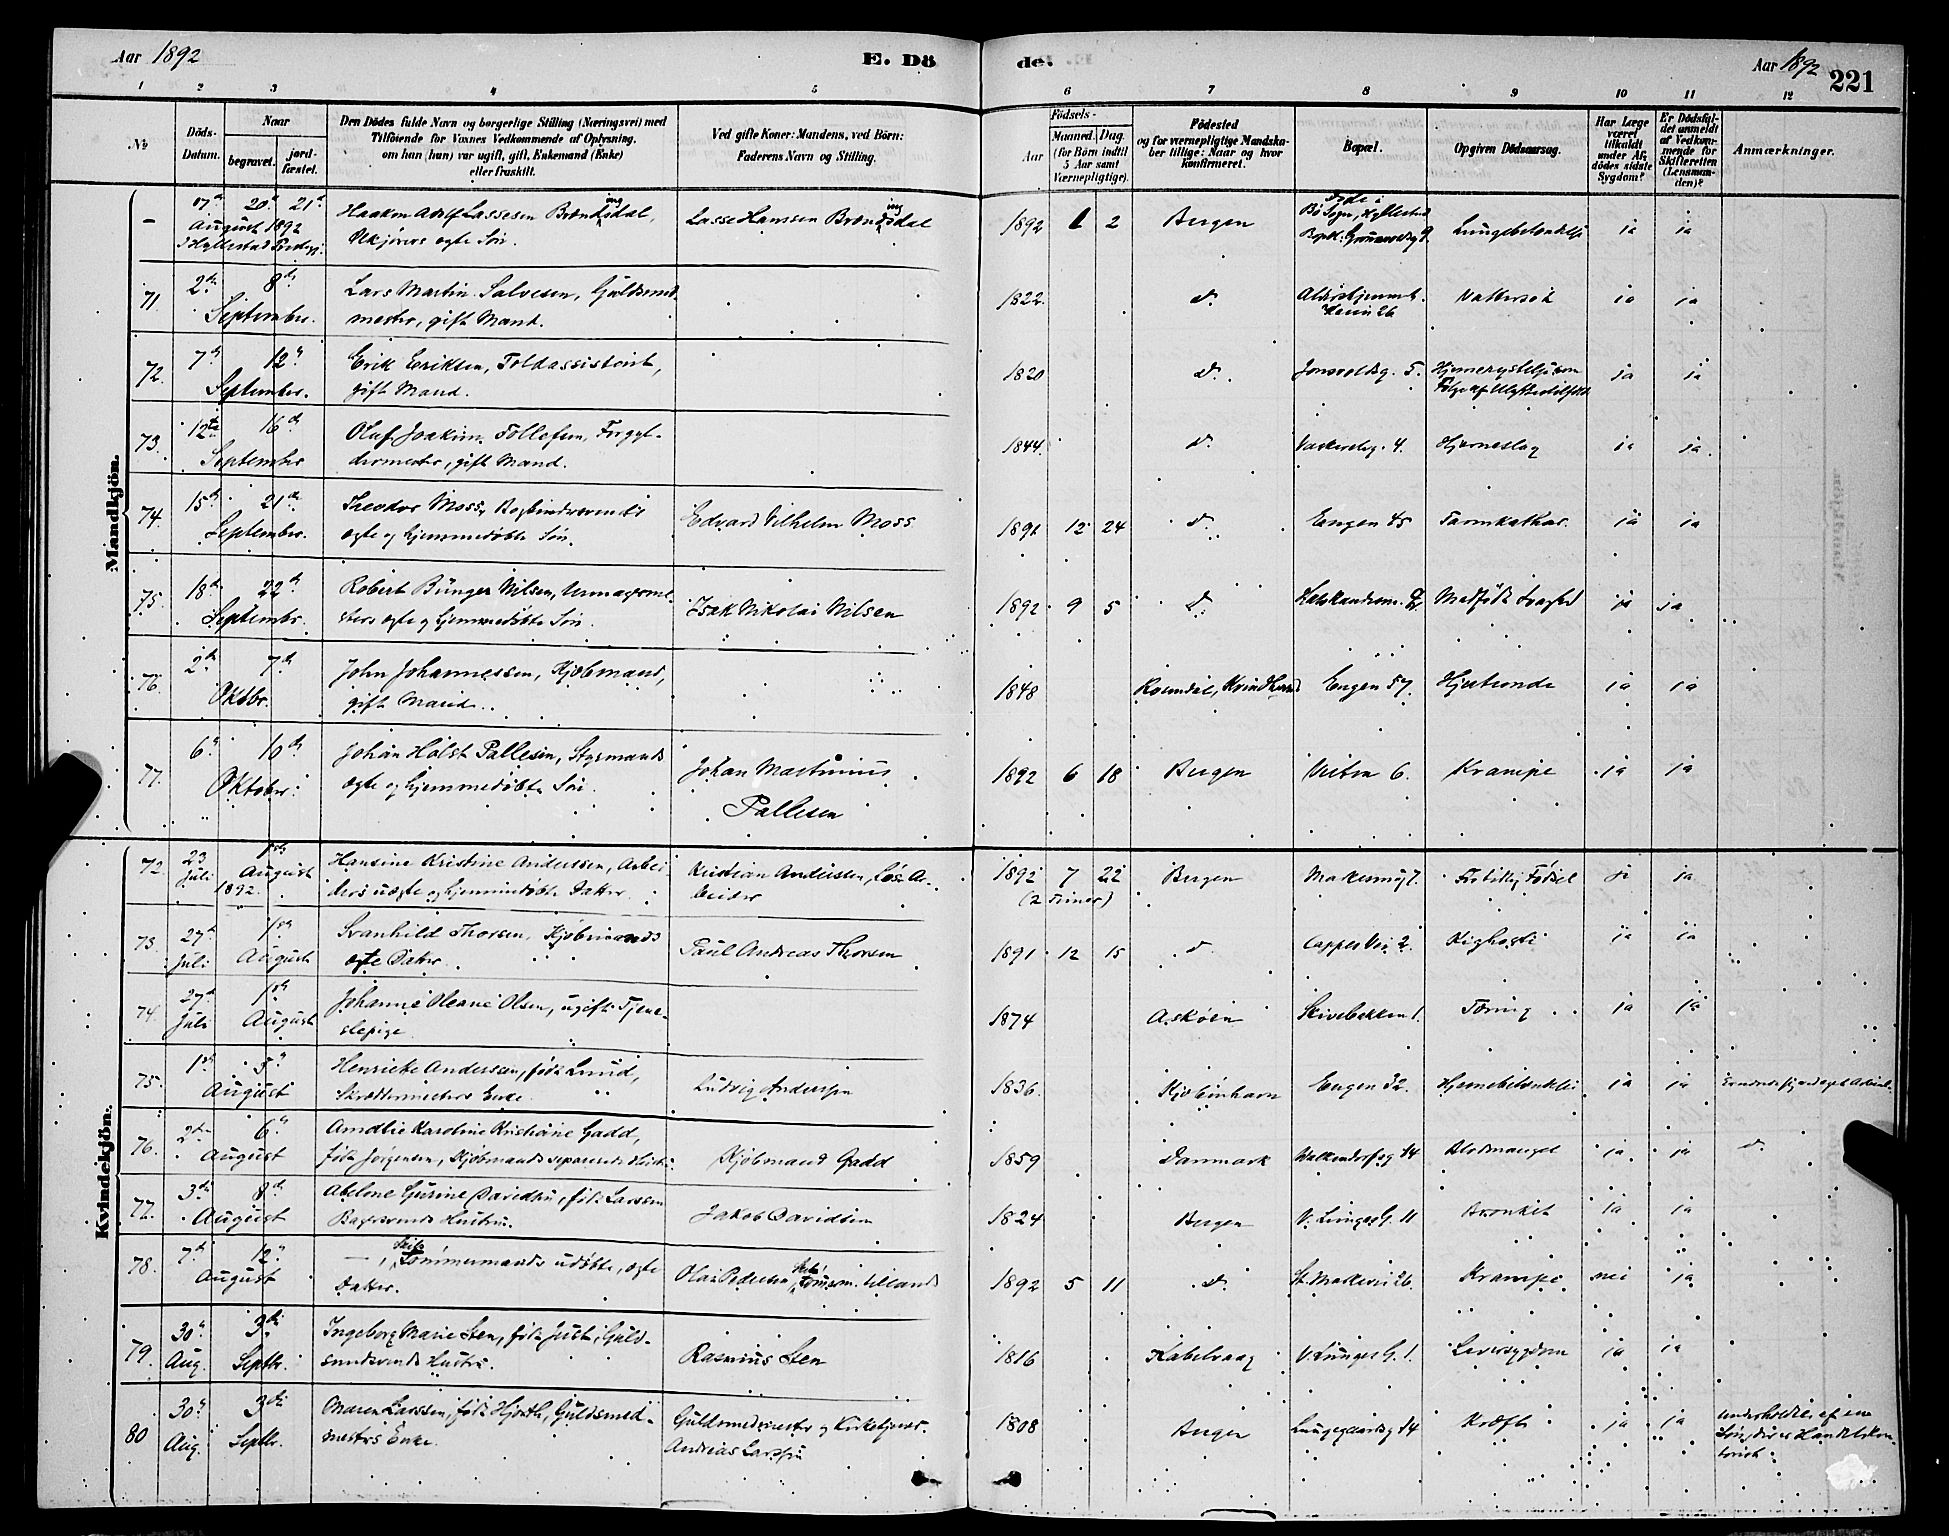 Aar 1892
E. Dö
de.
Aar 1892
221
1 2 3 4 5 6 7 8 9 10 11 12
№
Döds-
Datum.
Naar
begravet.
jord-
fæstet.
Den Dödes fulde Navn og borgerlige Stilling (Næringsvei) med
Tilföiende for Voxnes Vedkommende af Oplysning,
om han (hun) var ugift, gift, Enkemand (Enke)
eller fraskilt.
Ved gifte Koner: Mandens, ved Börn:
Faderens Navn og Stilling.
Födsels-
Aar
Maaned.
Dag.
(for Börn indtil
5 Aar samt
Værnepligtige).
Födested
og for værnepligtige Mandska-
ber tillige: Naar og hvor
konfirmeret.
Bopæl.
Opgiven Dödsaarsag.
Har Læge
været
tilkaldt
under Af-
dödes sidste
Sygdom?
Er Dödsfal-
det anmeldt
af Vedkom-
mende for
Skifteretten
(Lensman-
den)?
Anmærkninger.
Mandkjön.
17de 20de 21de
August 1892
Haakon Adolf Lassesen
ægte Søn.
Lasse Hansen
1892 1 2 Bergen
Døde i
ja ja
71. 2den 8de
September.
Lars Martin Salvesen, Guldsmed-
mester, gift Mand.
1822 d.
26
Vattersot ja ja
72. 7de 12te
September.
Erik Eriksen, Toldassistent,
gift Mand.
1820 d. Jonsvoldsg. 5.
ja ja
73. 12te 16de
September
Oluf Joakim Tollefsen, Forgyl-
dermester, gift Mand.
1844. d. 4. Hjerneslag ja ja
74. 15de 21de
September.
Theodor Moss, Bogbindersvends
ægte og hjemmedøbte Søn.
Edvard Vilhelm Moss
1891 12 24 d. Engen 45 Tarmkathar. ja ja
75. 18de 22de
Septembr.
Robert Bünger Nilsen,
ægte og hjemmedøbte Søn.
Isak Nikolai Nilsen
1892 9 5 d. Medfødt Svaghed ja ja
76. 2den 7de
Oktbr.
John Johannessen, Kjøbmand,
gift Mand.
1848 Rosendal, Kvindherred Engen 57. Hjerteonde ja ja
77. 6te 10de
Oktober
Johan Holst Pallesen, Styrmands
ægte og hjemmedøbte Søn.
Johan Martinius
Pallesen
1892 6 18 Bergen Veiten 6. Krampe ja ja
Kvindekjön.
72. 23 Juli 1ste August 1892.
Hansine Kristine Anderssen, Arbei-
ders uægte og hjemmedøbte Datter.
Kristian Anderssen, Løs Ar-
beider
1892 7 22
(2 Timer)
Bergen For tidlig Fødsel ja ja
73. 27de Juli 1ste August
Svanhild Thorsen, Kjøbmands
ægte Datter.
Paul Andreas Thorsen
1891 12 15 d. Cappes Vei 2. Kighoste ja ja
74. 27de Juli 1ste August
Johanne Oleane Olsen, ugift Tjene-
stepige
1874 Askøen Skivebakken 1. Tæring ja ja
75. 1ste 5te
August
Henriette Anderssen, født Lund,
Skræddermesters Enke.
Ludvig Anderssen
1836. Kjøbenhavn Engen 32. Hjernebetændelse ja ja
76. 2den 6te
August
Amalie Karoline Kristiane Gadd,
født Jørgensen, Kjøbmands separerede Hustru.
Kjøbmand Gadd
1859 Danmark Walkendorfsg 14 Blodmangel ja ja d.
77. 3die 8de
August
Abelone Gurine Davidsen, født Larssen
Bagersvends Hustru.
Jakob Davidsen
1824 Bergen V. Lungeg. 11 Bronkit ja ja
78. 7de 12te
August
— , Skibs Tømmermands udøbte, ægte
Datter.
Olai Pedersen, Skibs Tømmerm.
1892 5 11 d. St. Markevei 26. Krampe nei ja
79. 30te Aug. 3die Septbr.
Ingeborg Marie Sten, født Just, Guld-
smedsvends Hustru.
Rasmus Sten
1816 Kabelvaag V. Lungeg. 1. Leversygdom ja ja
80 30te Aug. 3die Septbr.
Maren Larssen, født Hjorth, Guldsmed-
mesters Enke.
Guldsmedmester og Kirketjener
Andreas Larssen
1808 Bergen Lungegaardsg 14 Kræft ja ja
underholdtes af en
Søn, der er Handelskon-
torist.